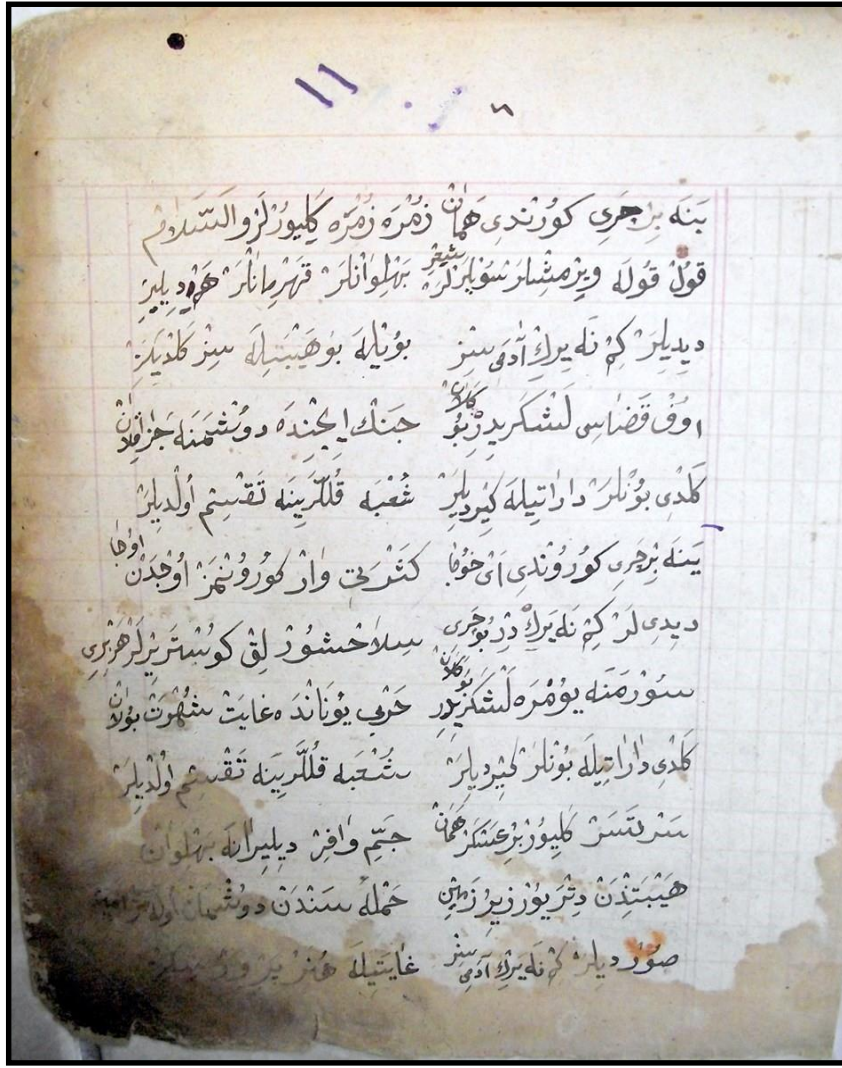 ١١
٦
ينه بِر جَرِى كورُندى هَمان زُمْرَه زُمْرَه كَلِيورْلَرْ والسّلام
قول قوله ويرمشلر سويلرلر شعر پهلوانلر قهرمانلر هم ديلير
ديديلر كم نه يرك آدمى سز بويله بو هيبتيله سز كلديلر
اوف قضاسى لشكريدر بو كلان جنك ايچنده دوشمنه
كلدى بونلر داراتيله كيرديلر شعبه قللرينه تقسيم اولديلر
ينه بر جرى كوروندى اى خوجا كثرتى وار كورونمز اوجدن اوجا
ديدى لر كم نه يرك در بو جرى سلاحشورلق كوستريرلر هر برى
سورمنه يومره لشكريدر بو كلان حربي يوناندە غايت شهرت بولان
كلدى داراتيله بونلر كيرديلر شعبه قللرينه تقسيم اولديلر
سرتسر كليور بر عسكر همان جمّ وافر ديليرانه پهلوان
هيبتندن دتريور زير زمين حمله سندن دوشمان اولە
صورديلر كم نه يرك آدمى سز غايتيله هنر